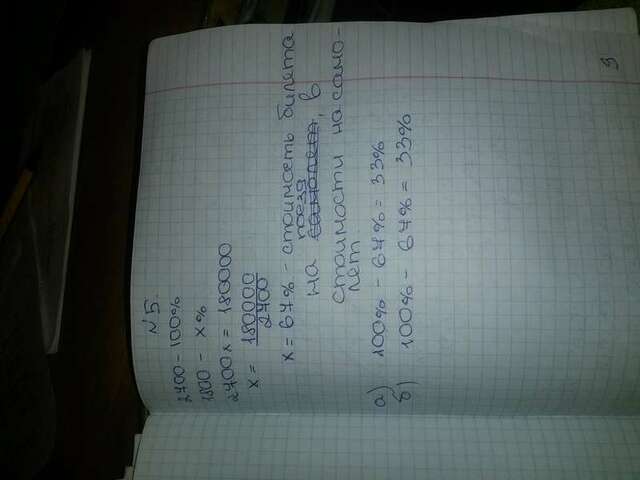 №5.
2700 - 100%
1800 - x%
2700x = 180000
x = 180000
2700
x = 67% - стоимость билета
поезд
на самолет, в
стоимости на само-
лет
а) 100% - 67% = 33%
б) 100% - 67% = 33%
3